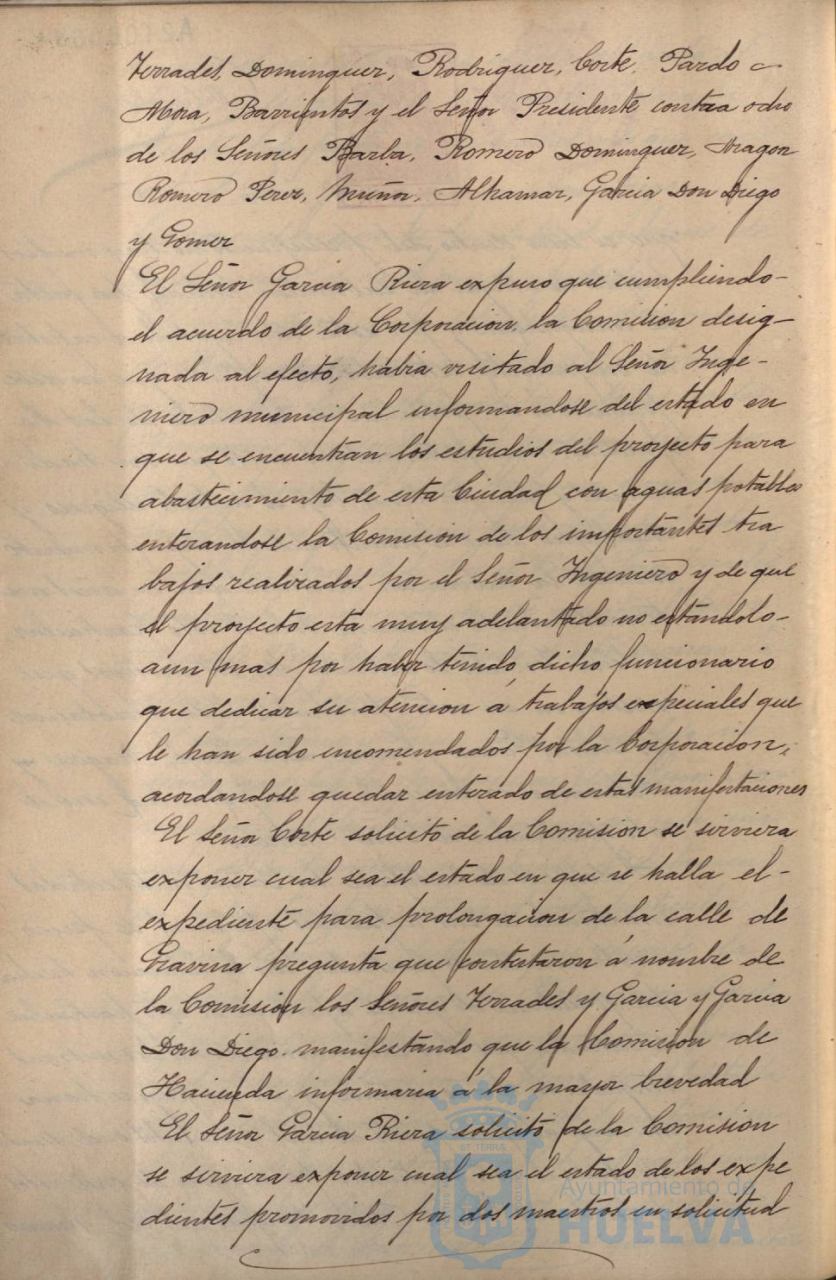 Terrades, Dominguez, Rodriguez, Corte, Pardo
Mora, Barrientos y el Señor Presidente contra ocho
de los Señores Barba, Romero Dominguez, Aragon
Romero Perez, Muñoz, Alkamar, Garcia Don Diego
y Gomez
El Señor Garcia Riera expuso que cumpliendo-
el acuerdo de la Corporacion, la Comision desig-
nada al efecto, habia visitado al Señor Inge-
niero municipal informandose del estado en
que se encuentran los estudios del proyecto para
abastecimiento de esta Ciudad con aguas potables
enterandose la Comision de los importantes tra
bajos realizados por el Señor Ingeniero y de que
el proyecto esta muy adelantado no estandolo-
aun mas por haber tenido, dicho funcionario
que dedicar su atencion á trabajos especiales que
le han sido encomendados por la Corporacion,
acordandose quedar enterado de estas manifestaciones
El Señor Corte solicitó de la Comision se sirviera
exponer cual sea el estado en que se halla el-
expediente para prolongacion de la calle de
Gravina pregunta que contestaron á nombre de
la Comision los Señores Terrades y Garcia y Garcia
Don Diego. manifestando que la Comision de
Hacienda informaria á la mayor brevedad
El Señor Garcia Riera solicitó de la Comision
se sirviera exponer cual sea el estado de los expe
dientes promovidos por dos maestros en solicitud
Ayuntamiento de
HUELVA